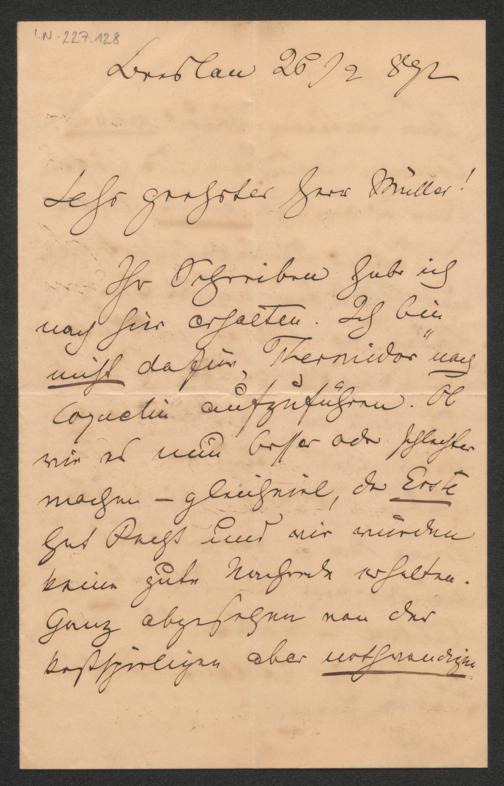 I.N. 227.128
Breslau 26/2 892
Sehr geehrter Herr Müller!
Ihr Schreiben habe ich
nach hier erhalten. Ich bin
nicht dafür, „Thermidor“ nach
Coquelin aufzuführen. Ob
wir es nun besser oder schlechter
machen – gleichviel, der Erste
hat Recht und wir würden
keine gute Nachrede erhalten.
Ganz abgesehen von der
kostspieligen aber nothwendigen